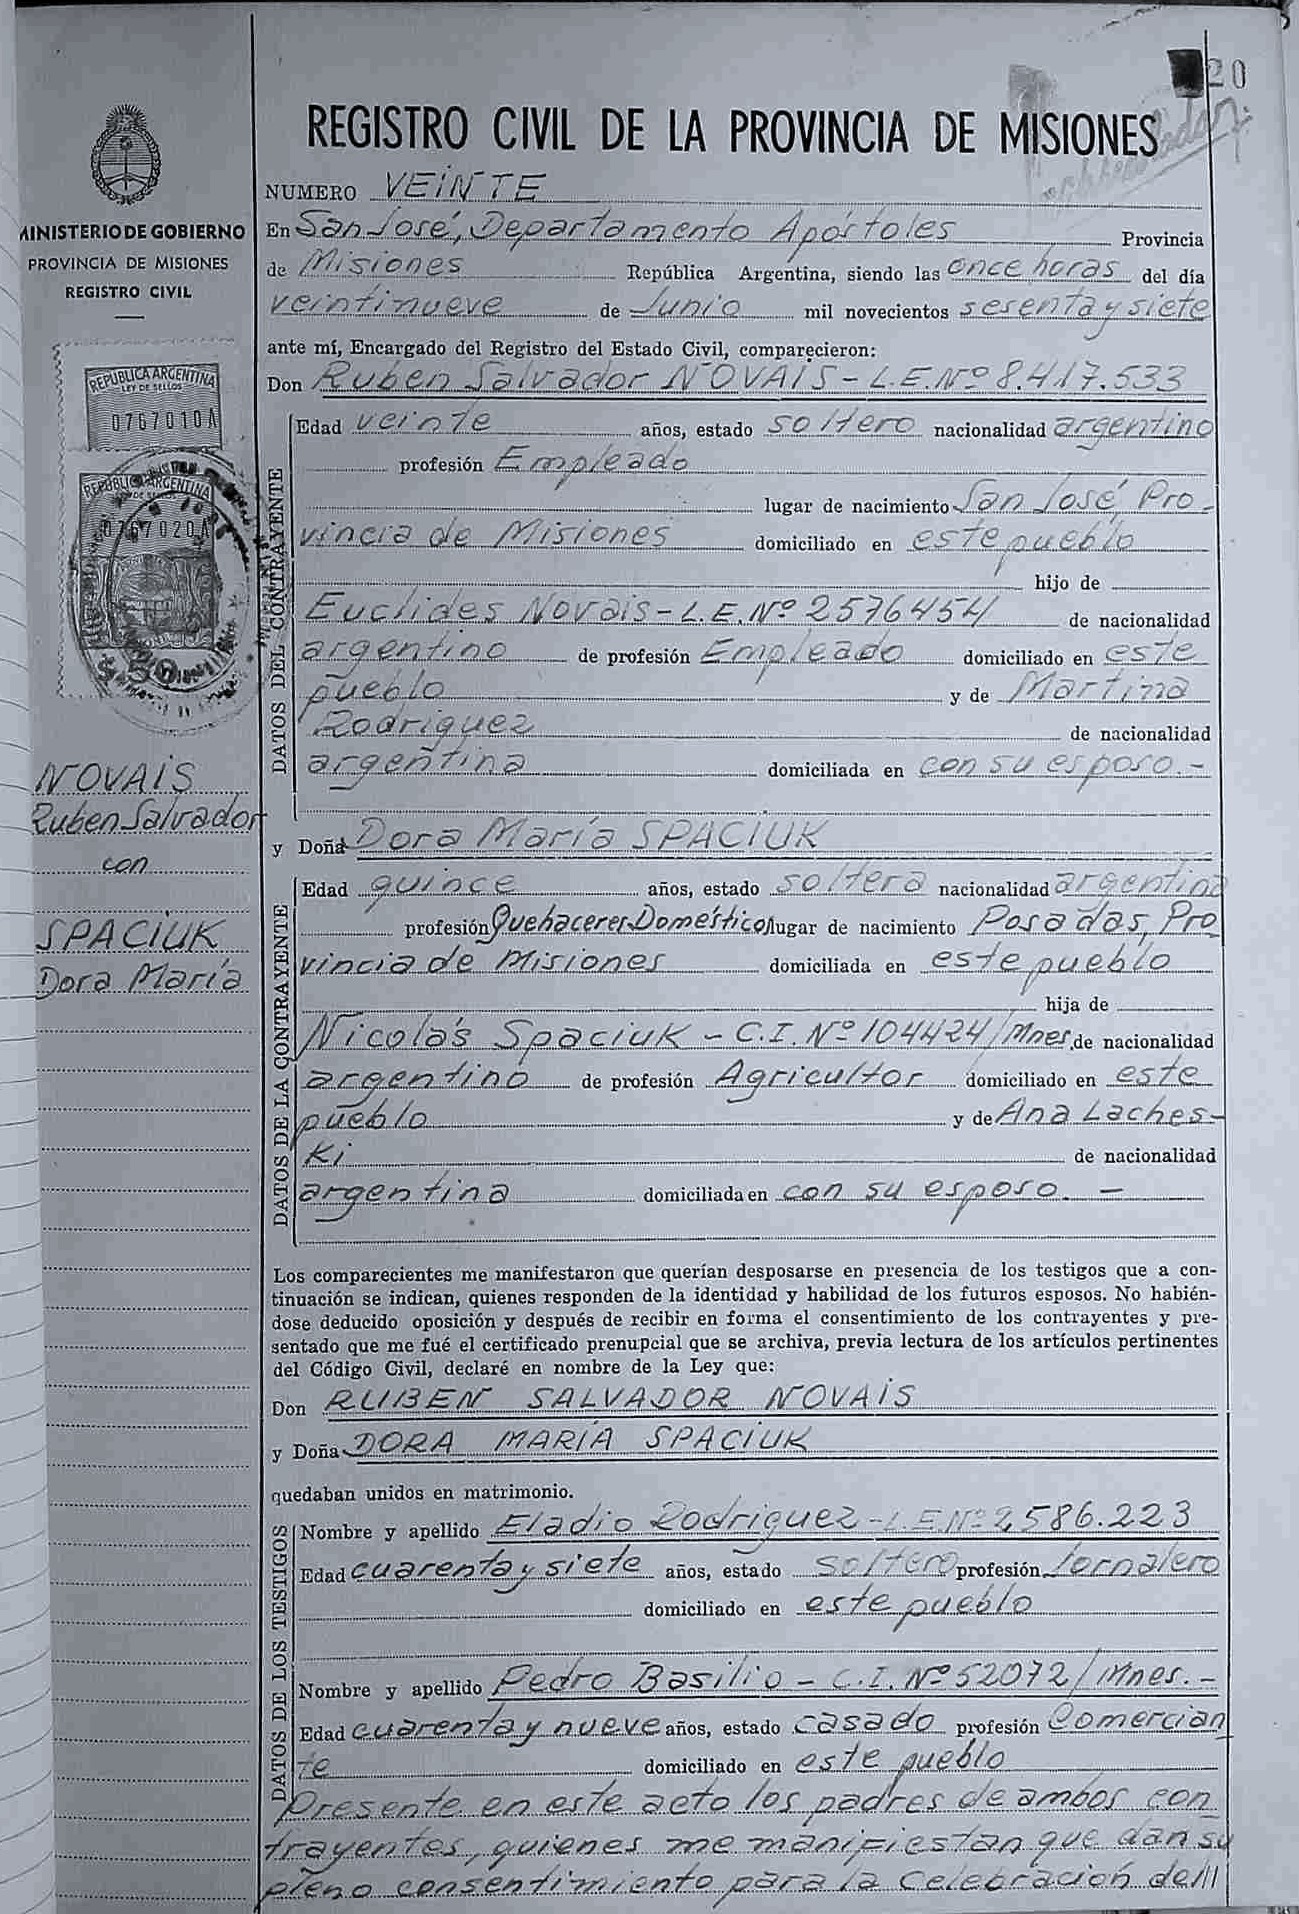 20
REGISTRO CIVIL DE LA PROVINCIA DE MISIONES
NUMERO VEINTE
En San José, Departamento Apóstoles Provincia
de Misiones República Argentina, siendo las once horas del día
veintinueve de Junio mil novecientos sesenta y siete
ante mí, Encargado del Registro del Estado Civil, comparecieron:
Don Ruben Salvador NOVAIS - L.E.Nº 8.417.533
DATOS DEL CONTRAYENTE
Edad veinte años, estado soltero nacionalidad argentino
profesión Empleado
lugar de nacimiento San José, Pro-
vincia de Misiones domiciliado en este pueblo
hijo de
Euclides Novais - L.E.Nº 2576454 de nacionalidad
argentino de profesión Empleado domiciliado en este
pueblo y de Martina
Rodriguez de nacionalidad
argentina domiciliada en con su esposo.-
y Doña Dora María SPACIUK
DATOS DE LA CONTRAYENTE
Edad quince años, estado soltera nacionalidad argentina
profesión Quehaceres Domésticos lugar de nacimiento Posadas, Pro
vincia de Misiones domiciliada en este pueblo
hija de
Nicolás Spaciuk - C.I. Nº 104424/Mnes. de nacionalidad
argentino de profesión Agricultor domiciliado en este
pueblo y de Ana Laches-
ki de nacionalidad
argentina domiciliada en con su esposo. -
Los comparecientes me manifestaron que querían desposarse en presencia de los testigos que a con-
tinuación se indican, quienes responden de la identidad y habilidad de los futuros esposos. No habién-
dose deducido oposición y después de recibir en forma el consentimiento de los contrayentes y pre-
sentado que me fué el certificado prenupcial que se archiva, previa lectura de los artículos pertinentes
del Código Civil, declaré en nombre de la Ley que:
Don RUBEN SALVADOR NOVAIS
y Doña DORA MARÍA SPACIUK
quedaban unidos en matrimonio.
DATOS DE LOS TESTIGOS
Nombre y apellido Eladio Rodriguez - L.E.Nº 2,586.223
Edad cuarenta y siete años, estado soltero profesión Jornalero
domiciliado en este pueblo
Nombre y apellido Pedro Basilio - C.I. Nº 52072/Mnes.-
Edad cuarenta y nueve años, estado casado profesión Comercian
te domiciliado en este pueblo
Presente en este acto los padres de ambos con
trayentes, quienes me manifiestan que dan su
pleno consentimiento para la celebración del//
MINISTERIO DE GOBIERNO
PROVINCIA DE MISIONES
REGISTRO CIVIL
REPUBLICA ARGENTINA
LEY DE SELLOS
0767010A
REPUBLICA ARGENTINA
LEY DE SELLOS
0767020A
$50
NOVAIS
Ruben Salvador
con
SPACIUK
Dora María